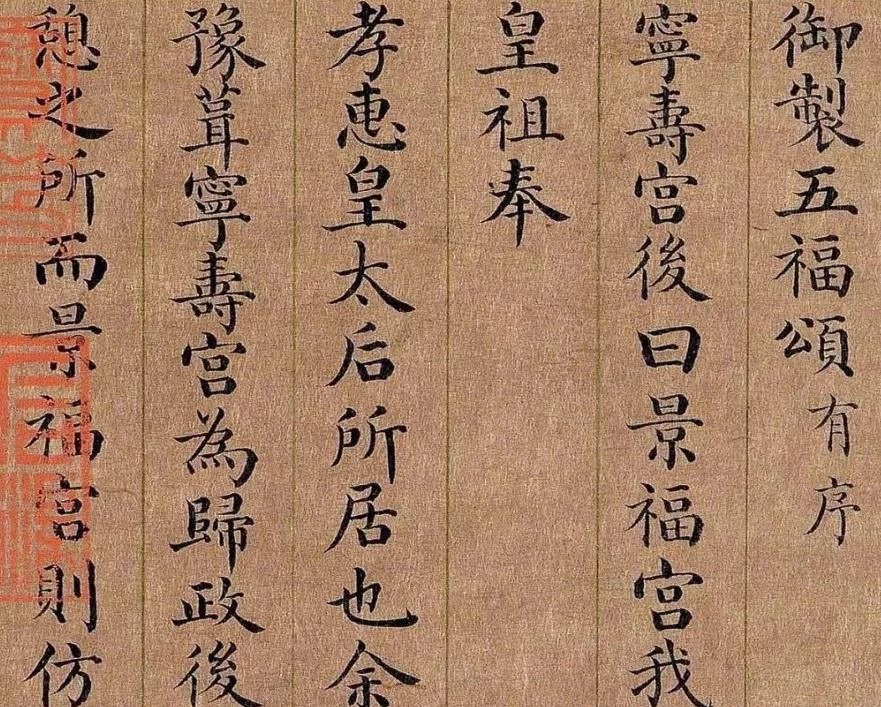 御製五福頌有序
寧壽宮後曰景福宮我
皇祖奉
孝惠皇太后所居也余
豫葺寧壽宮為歸政後
憩之所而景福宮則仿